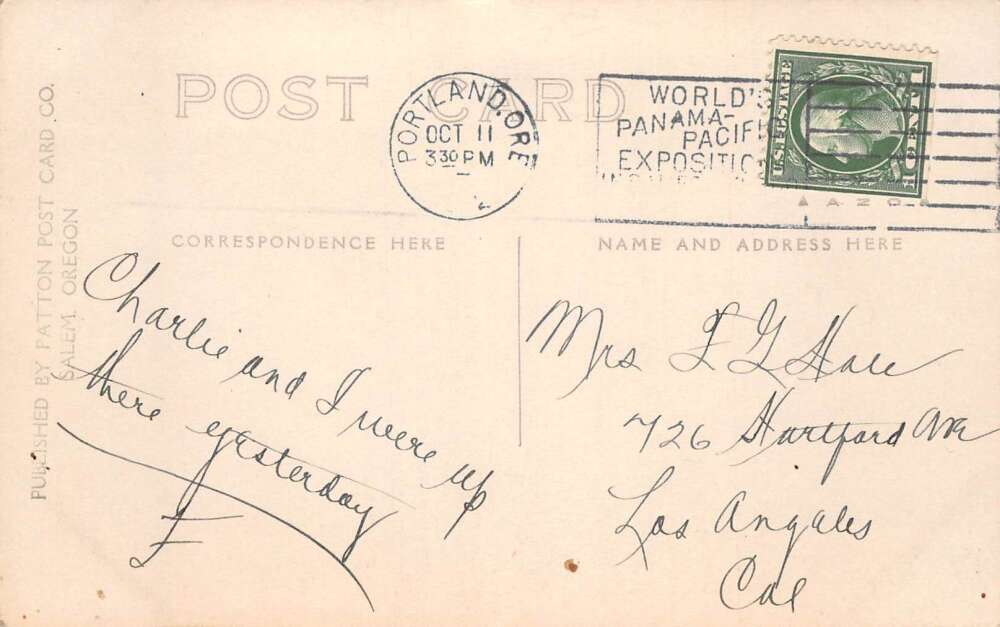 POST CARD
PORTLAND, ORE
OCT 11
3 30 PM
WORLD'S
PANAMA-
PACIFI
EXPOSITIO
U.S. POSTAGE
1 CENT
CORRESPONDENCE HERE
NAME AND ADDRESS HERE
PUBLISHED BY PATTON POST CARD CO.
SALEM, OREGON
Charlie and I were up
there yesterday
F
Mrs F G Hall
726 Hartford Ave
Los Angeles
Cal